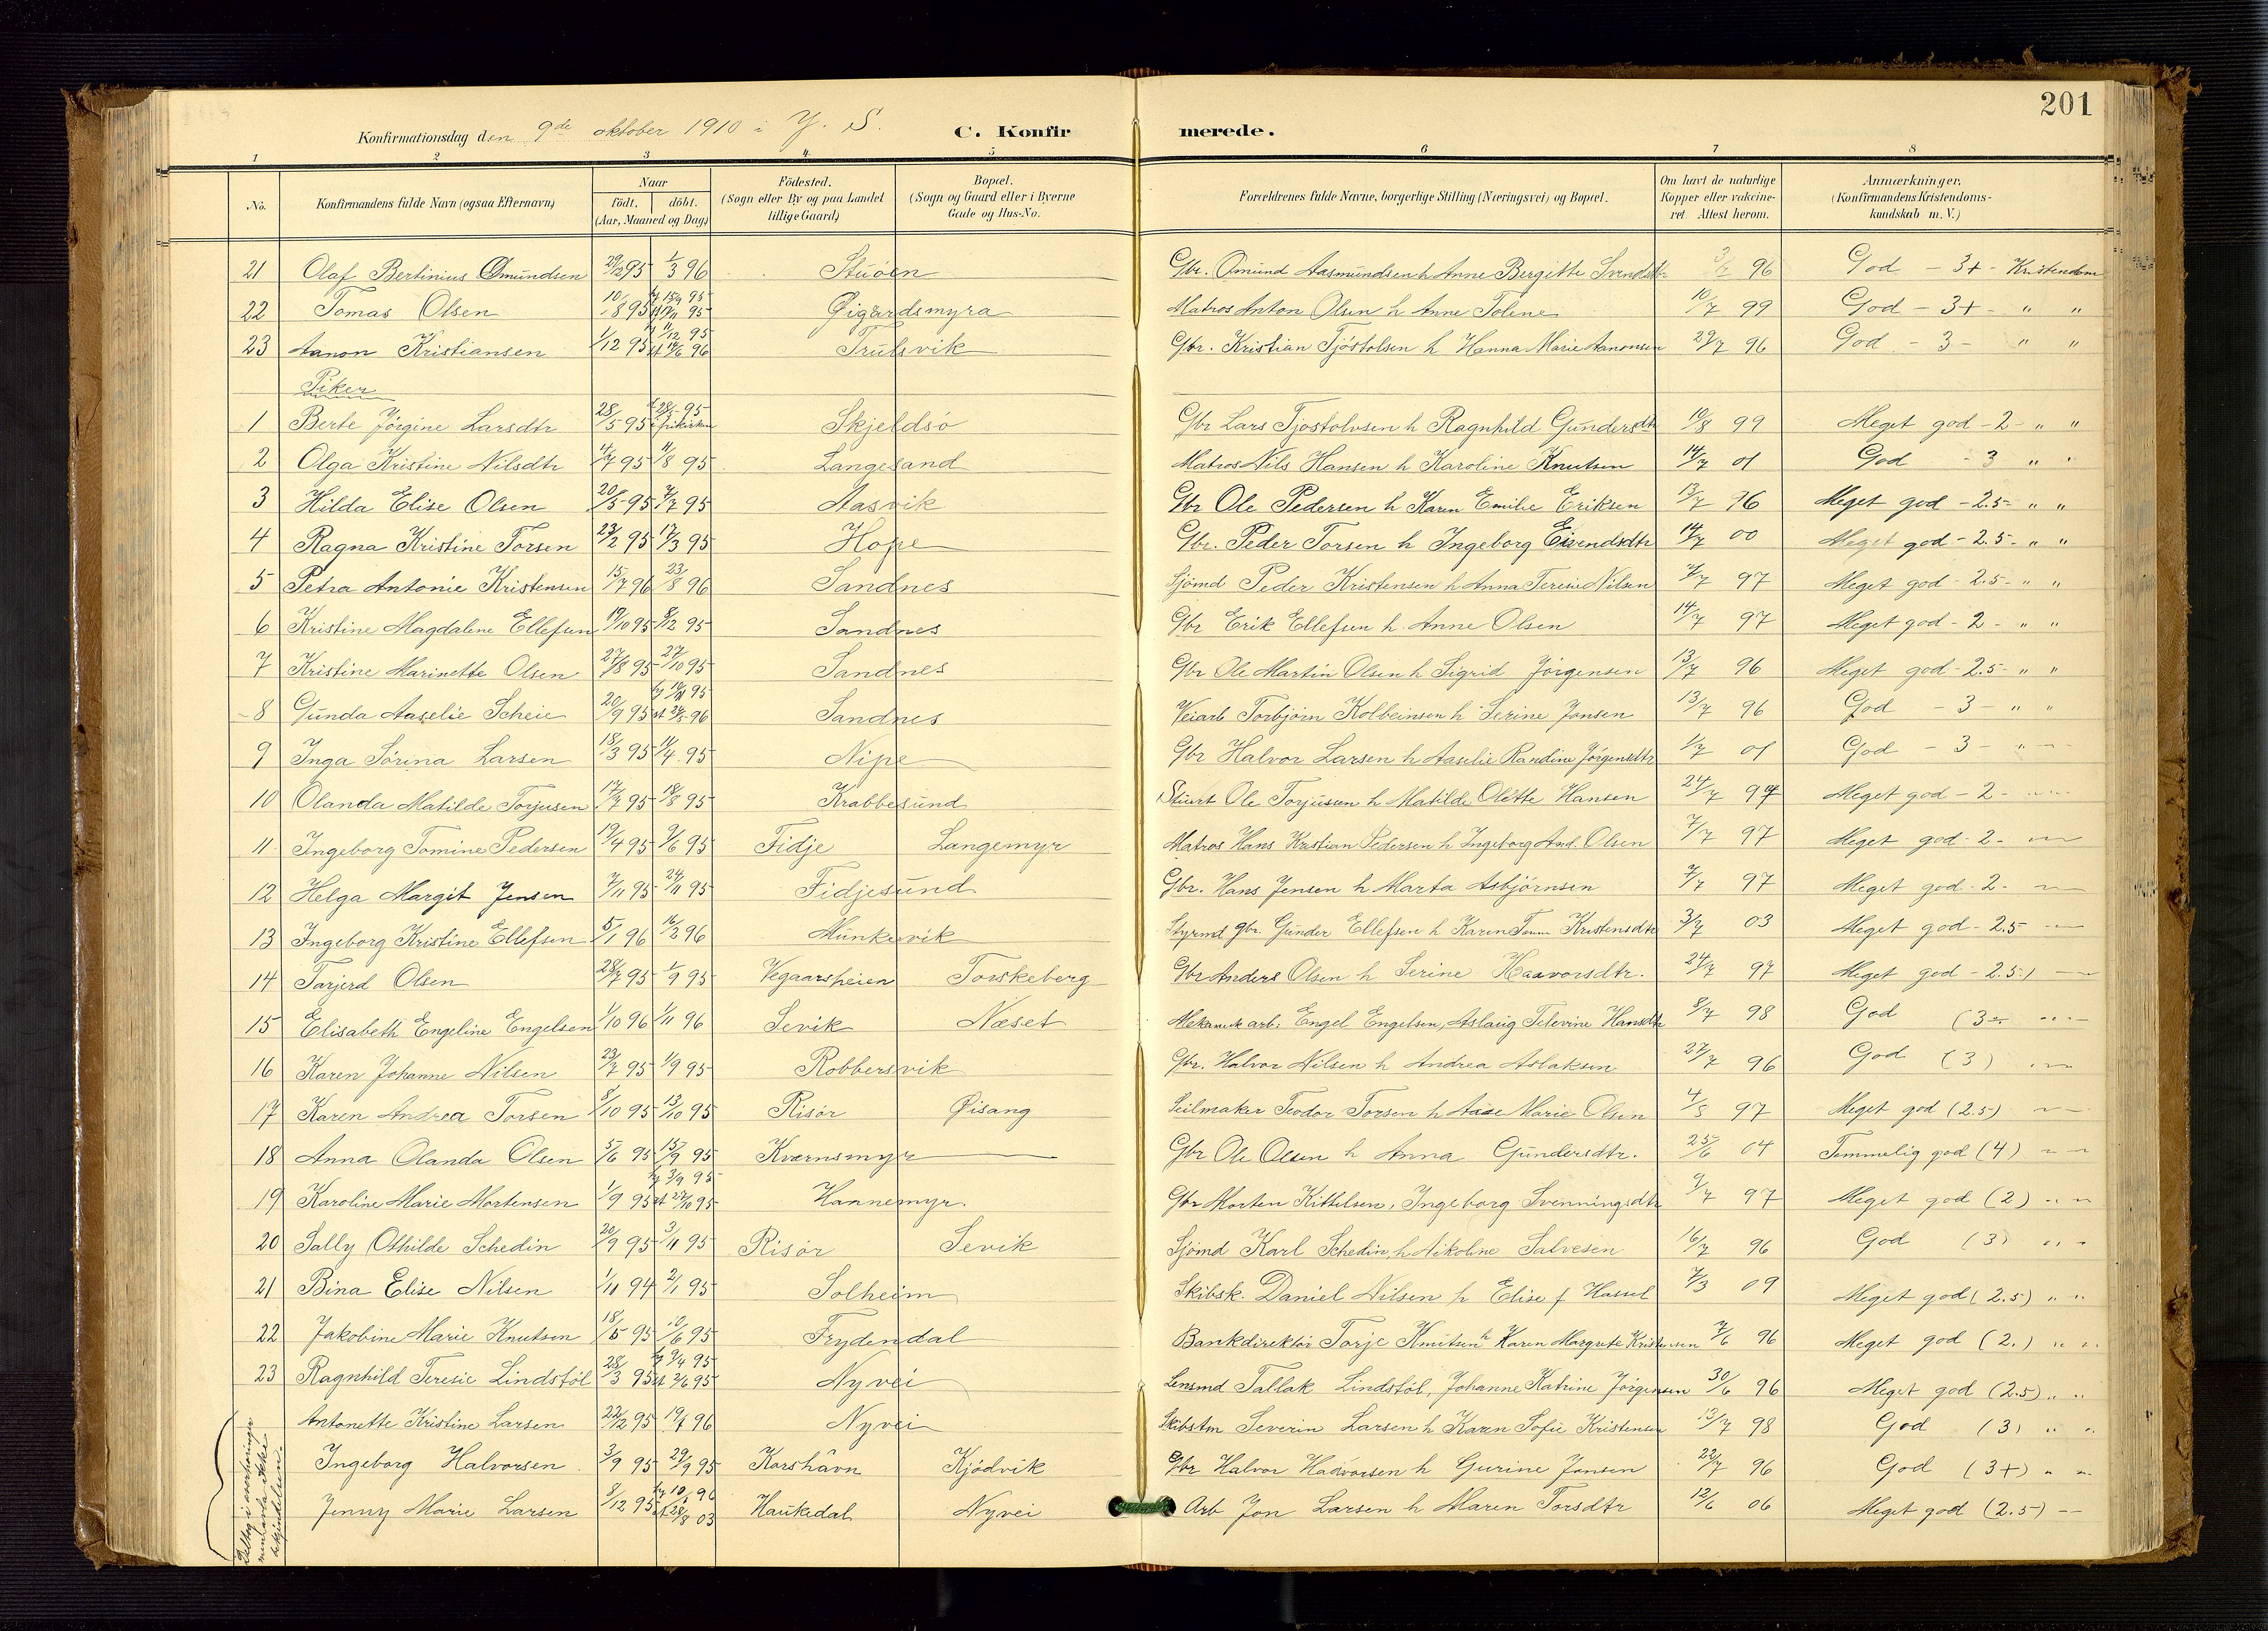 201
Konfirmationsdag den 9de oktober 1910 i Y. S. C. Konfirmerede.
1 2 3 4 5 6 7 8
No. Konfirmandens fulde Navn (ogsaa Efternavn) Naar födt. döbt. (Aar, Maaned og Dag) Födested. (Sogn eller By og paa Landet tillige Gaard) Bopæl. (Sogn og Gaard eller i Byerne Gade og Hus-No. Forældrenes fulde Navne, borgerlige Stilling (Næringsvei) og Bopæl. Om havt de naturlige Kopper eller vakcineret. Attest herom. Anmærkninger. (Konfirmandens Kristendomskundskab m. V.)
21 Olaf Bertinius Omundsen 29/12 95 1/3 96 Stuöen Gbr. Omund Aasmundsen h Anne Bergitte 96 God - 3+ - Kristendom
22 Tomas Olsen 10/8 95 Øigardsmyra Matros Anton Olsen h Anne Tolene 10/7 99 God - 3+ - " "
23 Aanon Kristiansen 1/12 95 Trulsvik Gbr. Kristian Tjöstolsen h Hanna Marie Aanonsen 29/7 96 God - 3 - " "
Piker
1 Berte Jörgine Larsdtr 28/5 95 Skjeldsö Gbr Lars Tjostolvsen h Ragnhild Gundersdtr 10/8 99 Meget god - 2 - " "
2 Olga Kristine Nilsdtr 4/7 95 11/8 95 Langesand Matros Nils Hansen h Karoline Knutsen 14/7 01 God - 3 " "
3 Hilda Elise Olsen 20/5 95 7/7 95 Aasvik Gbr Ole Pedersen h Karen Emilie Eriksen 13/7 96 Meget god - 2.5 - " "
4 Ragna Kristine Torsen 95 17/3 95 Hope Gbr. Peder Torsen h Ingeborg Eivendsdtr 14/7 00 Meget god - 2.5 - " "
5 Petra Antonie Kristensen 15/7 96 23/8 96 Sandnes Sjömd Peder Kristensen h Anna Teresie Nilsen 97 Meget god - 2.5 - " "
6 Kristine Magdalene Ellefsen 19/10 95 8/12 95 Sandnes Gbr Erik Ellefsen h. Anne Olsen 14/7 97 Meget god - 2 - " "
7 Kristine Marinette Olsen 27/8 95 27/10 95 Sandnes Gbr Ole Martin Olsen h Sigrid Jörgensen 13/7 96 Meget god - 2.5 - " "
8 Gunda Aaselie Scheie 20/9 95 Sandnes Veiarb Torbjörn Kolbeinsen h Serine Jonsen 13/7 96 God - 3 - " "
9 Inga Sörina Larsen 18/3 95 11/4 95 Nipe Gbr Halvor Larsen h Aaselie Randine Jörgensdtr 1/7 01 God - 3 - " "
10 Olanda Matilde Torjusen 17/7 95 18/8 95 Krabbesund Stuert Ole Torjussen h Matilde Olette Hansen 24/7 Meget god - 2 -
11 Ingeborg Tomine Pedersen 19/4 95 9/6 95 Fidje Langemyr Matros Hans Kristian Pedersen h Ingeborg And. Olsen 7/7 97 Meget god - 2 -
12 Helga Margit Jensen 7/11 95 24/11 95 Fidjesund Gbr. Hans Jensen h Marta Asbjörnsen 7/7 97 Meget god - 2 -
13 Ingeborg Kristine Ellefsen 5/1 96 16/2 96 Munkevik Styrmd gbr. Gunder Ellefsen h Karen Kristensdtr 3/7 03 Meget god - 2.5
14 Tarjerd Olsen 28/7 95 1/9 95 Vegaarsheien Torskeberg Gbr Anders Olsen h Serine Haavorsdtr. 24/7 97 Meget god - 2.5)
15 Elisabeth Engeline Engelsen 1/10 96 1/11 96 Sevik Næset Mekanisk arb. Engel Engelsen, Aslaug Televine Hansdtr 8/7 98 God (3
16 Karen Johanne Nilsen 23/7 95 1/9 95 Robbersvik Gbr. Halvor Nilsen h Andrea Aslaksen 27/7 96 God (3)
17 Karen Andrea Torsen 8/10 95 13/10 95 Risör Øisang Seilmaker Teodor Torsen h Aase Marie Olsen 97 Meget god (2.5)
18 Anna Olanda Olsen 5/6 95 15/9 95 Kværnsmyr Gbr Ole Olsen h Anna Gundersdtr. 25/6 04 Temmelig god (4)
19 Karoline Marie Mortensen 1/9 95 hj 3/9 95 st 27/10 95 Hannemyr. Gbr Morten Kittelsen, Ingeborg Svenningsdtr 97 Meget god (2)
20 Sally Othilde Schedin 20/9 95 3/11 95 Risör Sevik Sjömd Karl Schedin, h Nikoline Salvesen 16/7 96 God (3)
21 Bina Elise Nilsen 1/11 94 2/1 95 Solheim Skibsk. Daniel Nilsen h Elise f Hassel 7/3 09 Meget god (2.5) " "
22 Jakobine Marie Knutsen 18/5 95 10/6 95 Frydendal Bankdirektör Tarje Knutsen h Karen Margrete Kristensen 7/6 96 Meget god (2.) " "
23 Ragnhild Teresie Lindstöl 28/3 95 hj 9/4 95 st 2/6 95 Nyvei Lensmd Tallak Lindstöl, Johanne Katrine Jörgensen 30/6 96 Meget god (2.5) " "
Antonette Kristine Larsen 22/12 95 19/4 96 Nyvei Skibstm Severin Larsen h Karen Sofie Kristensen 13/7 98 God (3) " "
Ingeborg Halvorsen 3/9 95 29/9 95 Korshavn Kjödvik Gbr Halvor Haavorsen h Gurine Jansen 22/7 96 God (3+) " "
Jenny Marie Larsen 8/12 95 Haukedal Nyvei Arb Jon Larsen h Maren Torsdtr 12/6 06 Meget god (2.5)
Deltog i overhöringen men var da ikke